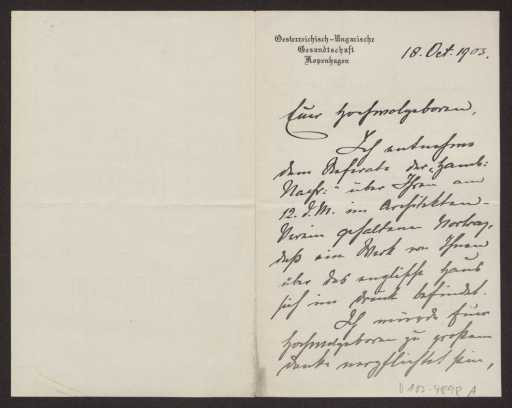 Oesterreichisch-Ungarische
Gesandtschaft
Kopenhagen
18. Oct. 1903.
Euer Hochwolgeboren,
Ich entnehme
dem Referate der „Hamb:
Nachr:" über Ihren am
12. d. M. im Architekten-
Verein gehaltenen Vortrag,
daß ein Werk von Ihnen
über das englische Haus
sich im Druck befindet.
Ich würde Euer
Hochwolgeboren zu großem
Danke verpflichtet sein,
D 102-4898 A